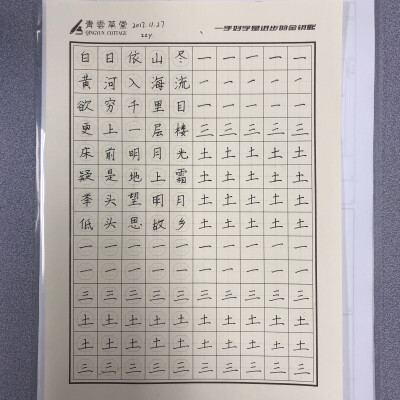 青雲草堂 2017.11.27 一手好字是进步的金钥匙
QINGYUN COTTAGE zzy.
白日依山尽一一一一一
黄河入海流一一一一一
欲穷千里目一一一一一
更上一层楼三三三三三
床前明月光土土土土土
疑是地上霜土土土土土
举头望明月土土土土土
低头思故乡土土土土土
一一一一一一一一一一
一一一一一一一一一一
三三三三三三三三三三
土土土土土土土土土土
土土土土土土土土土土
三三三三三三三三三三